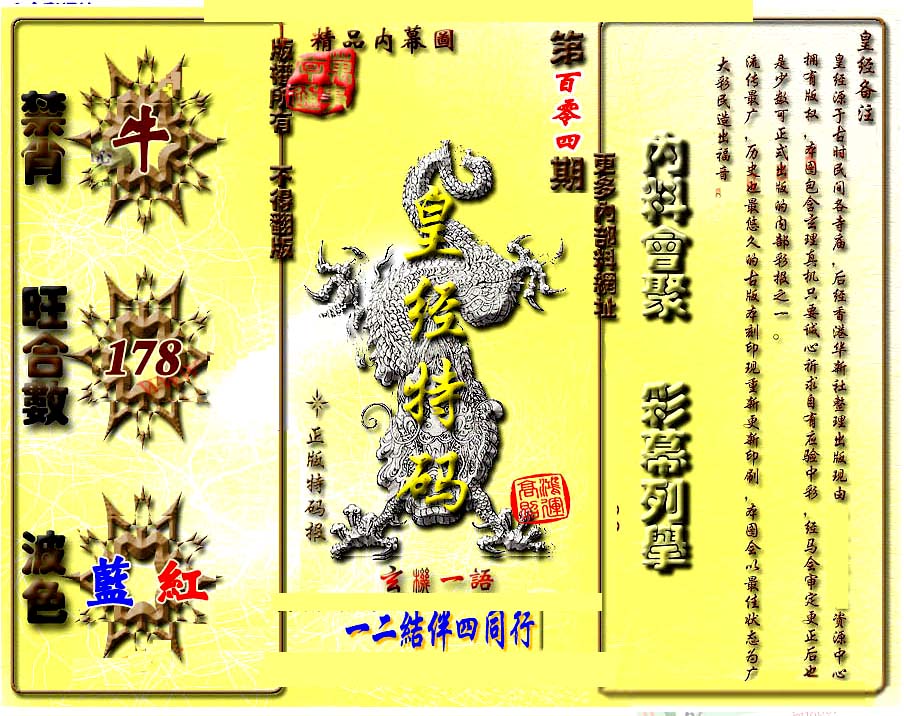 精品内幕圖
第百零四期
禁肖
牛
旺合數
178
波色
藍 紅
版權所有 不得翻版
皇经特码
正版特码报
鴻運高照
玄機一語
一二結伴四同行
更多內部料網址
內料會聚 彩幕列舉
皇经备注
皇经源于古时民间各寺庙，后经香港华新社整理出版现由
资源中心
拥有版权，本图包含玄理真机只要诚心祈求自有应验中彩，经马会审定更正后也
是少数可正式出版的内部彩报之一。
流传最广，历史也最悠久的古版本刻印现重新更新印刷，本图会以最佳状态为广
大彩民造出福音。